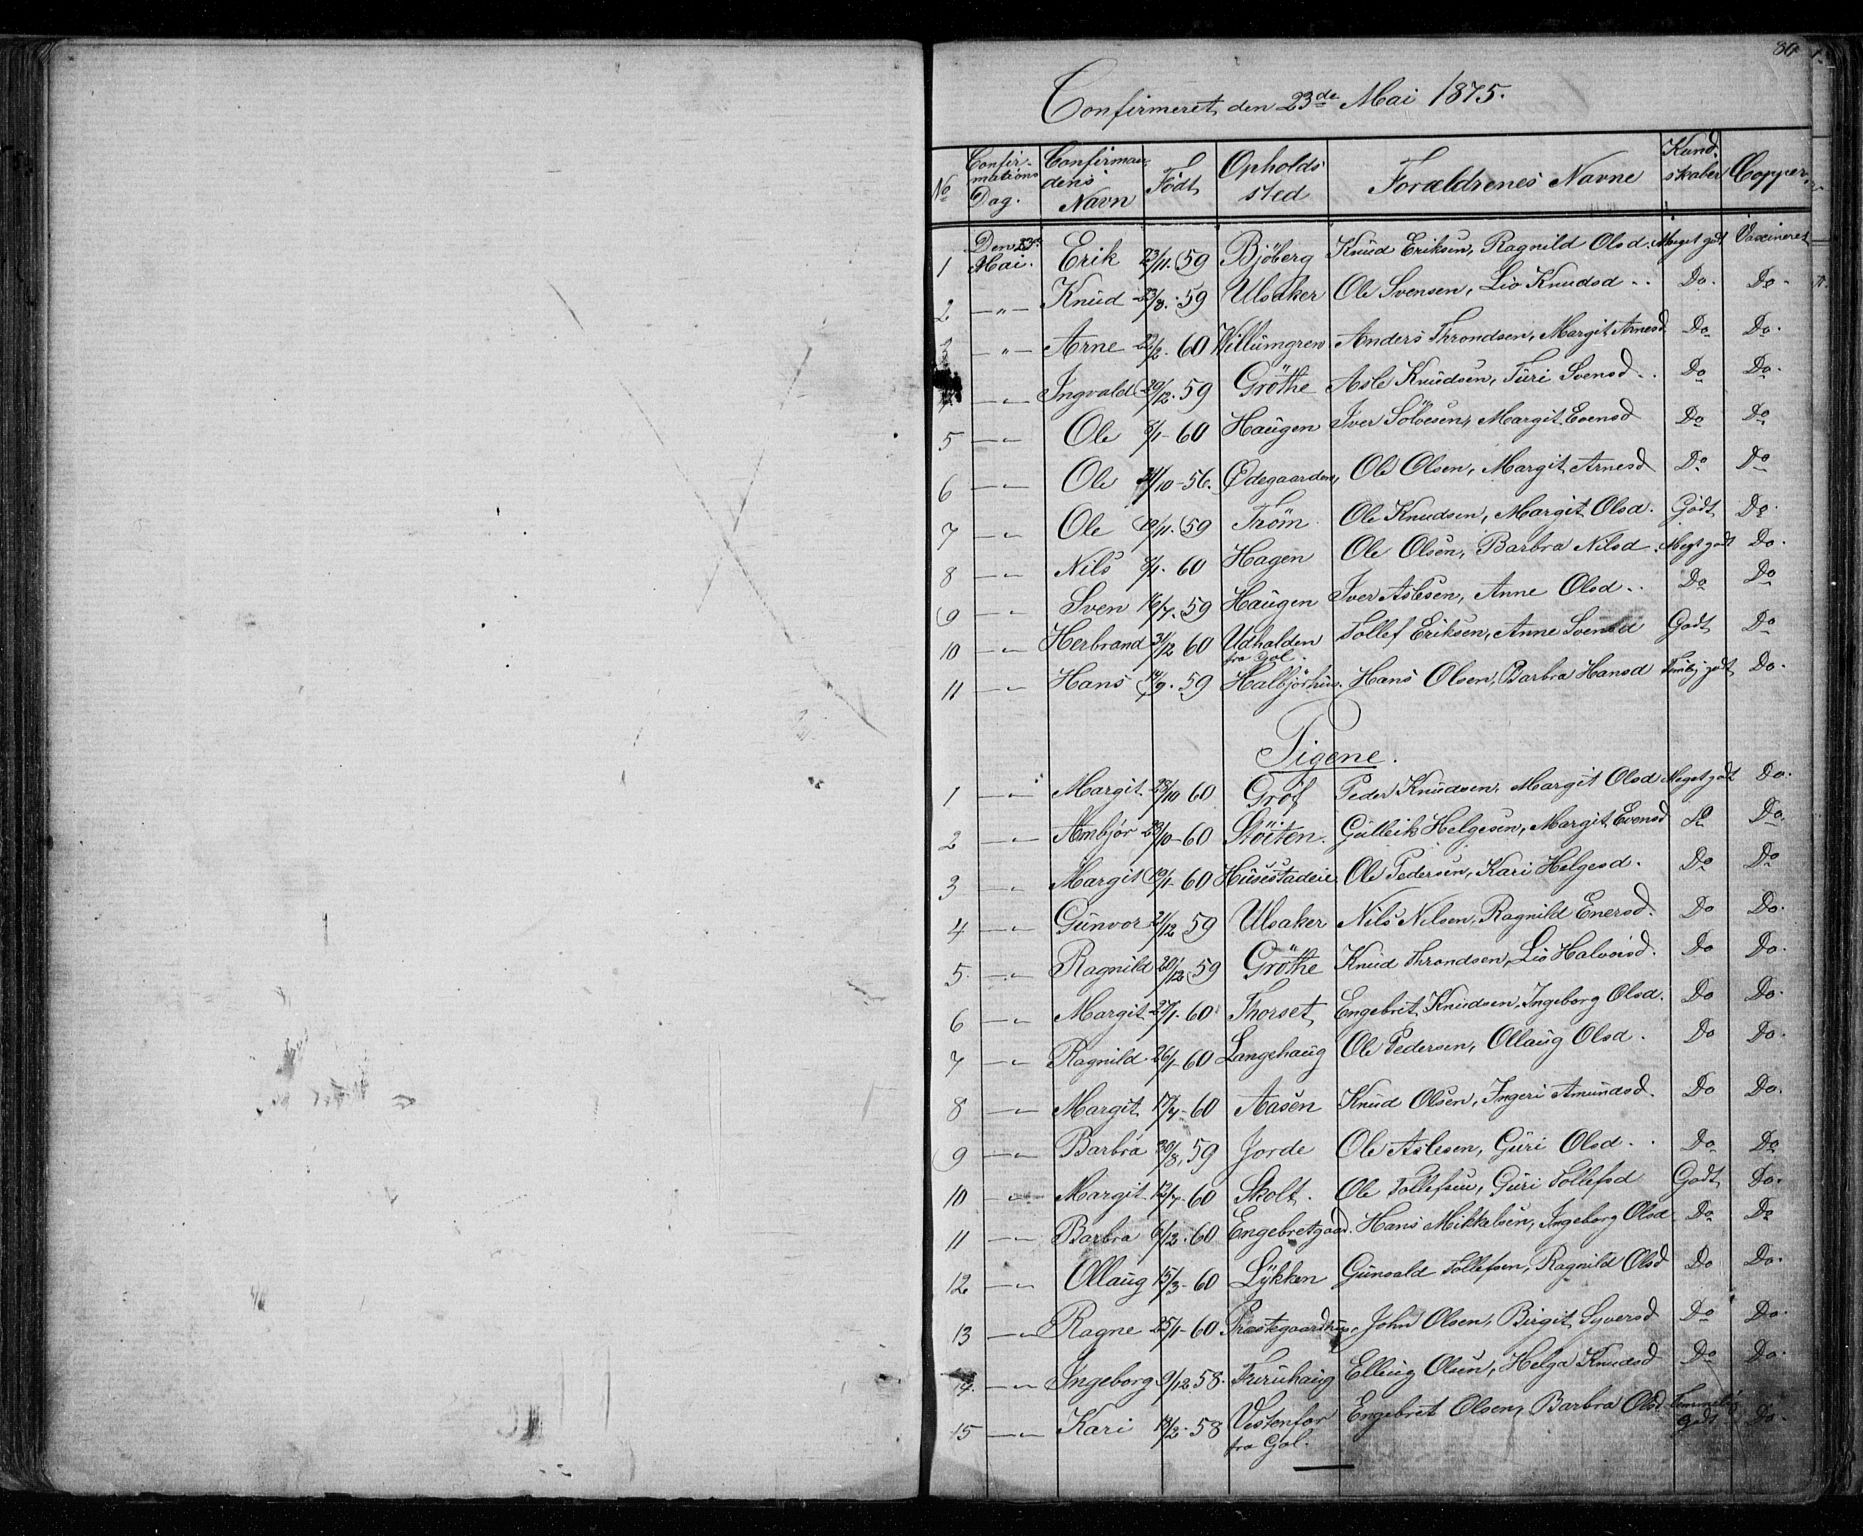 80
Confirmeret den 23de Mai 1875.
No Confirmations Dag. Confirmandens Navn Født Opholdssted Forældrenes Navne Kundskaber Copper
1 Den 23de Mai. Erik 23/11. 59 Bjöberg Knud Eriksen, Ragnild Olsd. Meget godt Vaxineret
2 —"— Knud 23/8. 59 Ulsaker Ole Svensen, Liv Knudsd. Do. Do.
3 —"— Arne 22/2. 60 Villumgren Anders Throndsen, Margit Arnesd. Do Do.
—"— Ingvald 20/12. 59 Gröthe Asle Knudsen, Turi Svensd. Do Do.
5 —"— Ole 8/1- 60 Haugen Iver Sölvesen, Margit Evensd Do Do
6 —"— Ole /10-56. Ødegaarden, Ole Olsen, Margit Arnesd Do Do
7 —"— Ole 19/11. 59 Tröm Ole Knudsen, Margit Olsd. Godt Do.
8 —"— Nils 8/1. 60 Hagen Ole Olsen, Barbra Nilsd. Meget godt Do.
9 —"— Sven 16/7. 59 Haugen Iver Aslesen, Anne Olsd. Do Do
10 —"— Herbrand 31/12 60 Udhalden fra Gol. Tollef Eriksen, Anne Svensd Godt Do
11 —"— Hans 14/9. 59 Halbjörhus. Hans Olsen, Barbra Hansd Temlig godt Do.
Pigene.
1 —"— Margit 28/10 60 Gröf Peder Knudsen, Margit Olsd Meget godt Do.
2 —"— Ambjör 23/10-60 Stöiten. Gulleik Helgesen, Margit Evensd Do Do.
3 —"— Margit 19/1- 60 Husestadeie Ole Pedersen, Kari Helgesd. Do Do
4 —"— Gunvor 21/12 59 Ulsaker Nils Nilsen, Ragnild Enersd. Do Do.
5. —"— Ragnild 20/12. 59 Gröthe Knud Throndsen, Liv Halvorsd. Do Do.
6 —"— Margit 27/1. 60 Thorset Engebret Knudsen, Ingeborg Olsd. Do Do.
7 —"— Ragnild 26/1- 60 Langehaug Ole Pedersen, Ollaug Olsd. Do Do.
8 —"— Margit 17/7- 60 Aasen Knud Olsen, Ingeri Amundsd. Do Do.
9 —"— Barbra 30/8, 59 Jorde Ole Aslesen, Guri Olsd. Do Do
10 —"— Margit 12/7- 60 Skolt. Ole Tollefsen, Guri Tollefsd Godt Do.
11 —"— Barbra 6/12. 60 Engebretgaard. Hans Mikkelsen, Ingeborg Olsd Do Do
12 —"— Ollaug 15/3- 60 Lykken Gunvald Tollefsen, Ragnild Olsd Do Do.
13 —"— Ragne 25/1- 60 Præstegaardhus, John Olsen, Birgit Syversd Do Do.
14. —"— Ingeborg 9/12 58. Furuhaug Elling Olsen, Helga Knudsd Do Do.
15 —"— Kari 18/2. 58 Vestenfor fra Gol. Engebret Olsen, Barbra Olsd Temmelig godt Do.